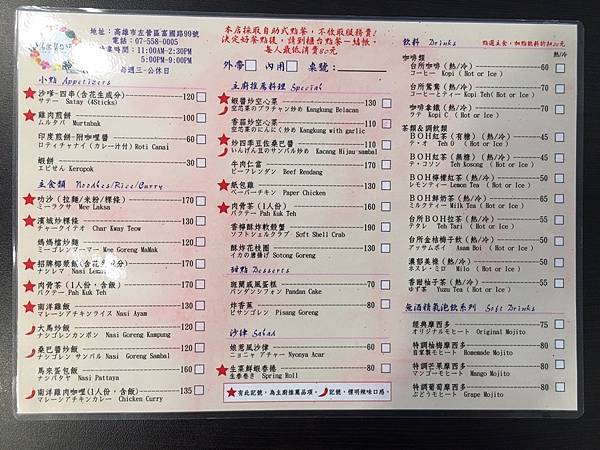 地址：高雄市左營區富國路99號
電話：07-558-0005
營業時間：11:00AM-2:30PM
5:00PM-9:00PM
每週三-公休日
本店採取自助式點餐，不收取服務費!
決定好餐點後，請到櫃台點餐－結帳。
每人最低消費80元
外帶 內用 桌號：
小點 Appetizers
沙嗲-四串(含花生成分) 120
サテー Satay (4Sticks)
雞肉煎餅 100
ムルタバ Murtabak
印度煎餅-附咖哩醬 60
ロティチャナイ(カレー汁付) Roti Canai
蝦餅 30
エビせん Keropok
主食類 Noodles/Rice/Curry
叻沙 (拉麵/米粉/粿條) 170
ミーラクサ Mee Laksa
濱城炒粿條 130
チャークイテオ Char Kway Teow
媽媽檔炒麵 130
ミーゴレンマーマー Mee Goreng MaMak
招牌椰漿飯(含花生成分) 170
ナシレマ Nasi Lemak
肉骨茶 (1人份，含飯) 170
バクテー Pah Kuk Teh
南洋雞飯 130
マレーシアチキンライス Nasi Ayam
大馬炒飯 120
ナシゴレンカンポン Nasi Goreng Kampung
桑巴醬炒飯 120
ナシゴレン サンバル Nasi Goreng Sambal
馬來蛋包飯 100
ナシパタヤ Nasi Pattaya
南洋雞肉咖哩(1人份，含飯) 135
マレーシアチキンカレー Chicken Curry
主廚推薦料理 Special
蝦醬炒空心菜 130
空芯菜のブラチャン炒め Kangkung Belacan
香蒜炒空心菜 110
空芯菜のにんにく炒め Kangkung with garlic
炒四季豆佐桑巴醬 120
いんげん豆のサンバル炒め Kacang Hijau sambal
牛肉仁當 180
ビーフレンダン Beef Rendang
紙包雞 130
ペーパーチキン Paper Chicken
肉骨茶 (1人份) 160
バクテー Pah Kuk Teh
香檸酥炸軟殼蟹 190
ソフトシェルクラブ Soft Shell Crab
酥炸花枝圈 130
イカの唐揚げ Sotong Goreng
甜點 Desserts
斑蘭戚風蛋糕 70
パンダンシフォン Pandan Cake
炸香蕉 80
ピサンゴレン Pisang Goreng
沙律 Salad
娘惹風沙律 60
ニョニャ アチャー Nyonya Acar
生菜鮮蝦春捲 80
生春巻き Spring Roll
有此記號，為主廚推薦品項。 記號，標明辣味口感。
飲料 Drinks 點選主食，加點飲料折扣20元
熱/冷
咖啡類
台所咖啡 (熱/冷) 60
コーヒー Kopi (Hot or Ice)
台所鴛鴦 (熱/冷) 65
コーヒーティー Kopi Teh (Hot or Ice)
咖啡拿鐵 (熱/冷) 70
ラテ Kopi C (Hot or Ice)
茶類＆調飲類
BOH紅茶 (有糖) (熱/冷) 50
テ・オ Teh O (Hot or Ice)
BOH紅茶 (無糖) (熱/冷) 45
テ・コソン Teh Kosong (Hot or Ice)
BOH檸檬紅茶 (熱/冷) 60
レモンティー Lemon Tea (Hot or Ice)
BOH鮮奶茶 (熱/冷) 65
ミルクティー Milk Tea (Hot or Ice)
台所BOH拉茶 (熱/冷) 55
テタレ Teh Tari (Hot or Ice)
台所金桔梅子飲 (熱/冷) 50
アッサムボイ Asam Boi (Hot or Ice)
濃郁美祿 (熱/冷) 55
ネスレ・ミロ Milo (Hot or Ice)
香甜柚子茶 (熱/冷) 55
ゆず茶 Yuzu Tea (Hot or Ice)
無酒精氣泡飲系列 Soft Drinks
經典摩西多 75
オリジナルモヒート Original Mojito
特調柚梅摩西多 80
自家製モヒート Homemade Mojito
特調芒果摩西多 80
マンゴーモヒート Mango Mojito
特調葡萄摩西多 80
ぶどうモヒート Grape Mojito